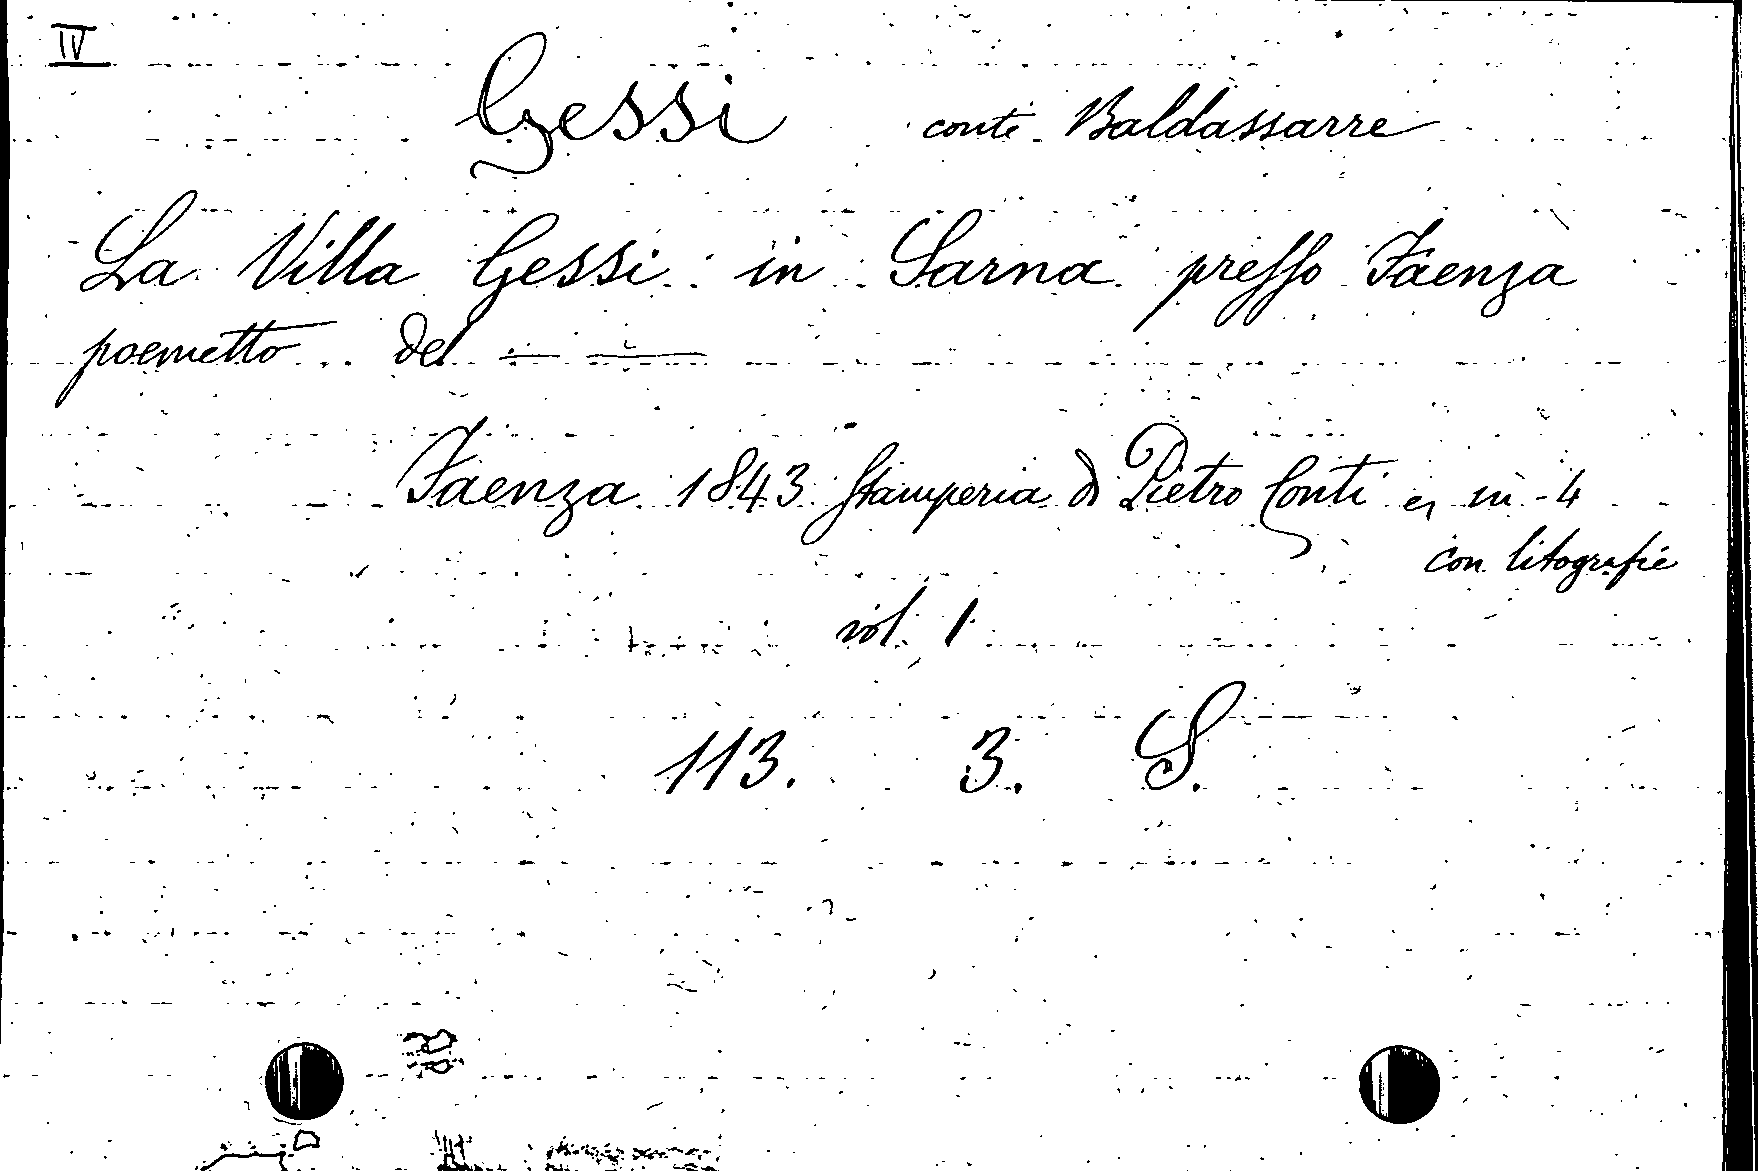 IV
Gessi conte Baldassarre
La Villa Gessi in Sarna presso Faenza
poemetto del — —
Faenza 1843 Stamperia di Pietro Conti in-4
con litografie
vol. 1
113. 3. S.